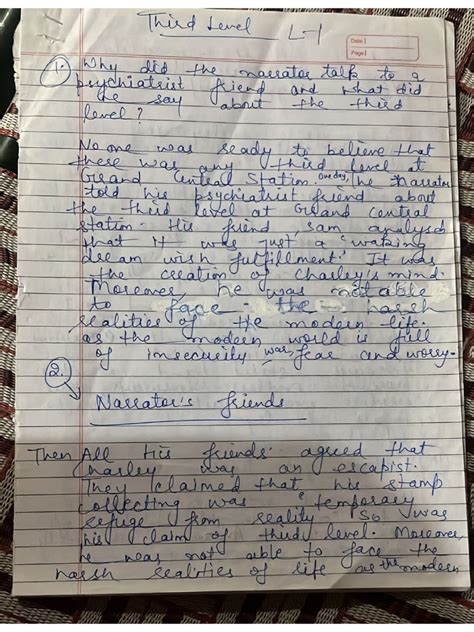 Third Level L-1
Date
Page
1. Why did the narrator talk to a
psychiatrist friend and what did
he say about the third
level?
No one was ready to believe that
there was any third level at
Grand Central Station. One day, The Narrator
told his psychiatrist friend about
the third level at Grand central
station. His friend, sam analysed
that it was just a 'waking
dream wish fulfillment'. It was
the creation of Charley's mind.
Moreover, he was not able
to face the harsh
realities of the modern life.
as the modern world is full
of insecurity, war, fear and worry.
2.
Narrator's friends
Then All His friends agreed that
Charley was an escapist.
They claimed that his stamp
collecting was temporary
refuge from reality So was
his claim of third level. Moreover
he was not able to face the
harsh realities of life as the modern